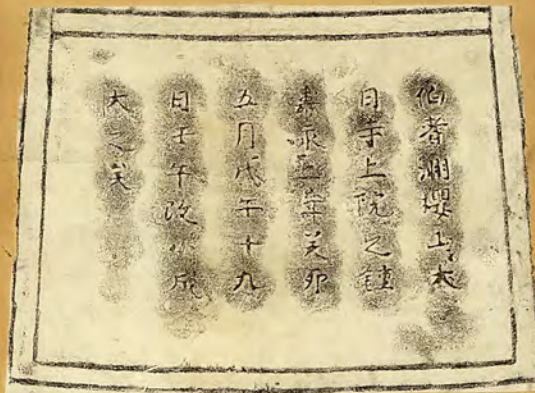 伯耆州櫻山大
日寺上院之鐘
壽永二年癸卯
五月戊午十九
日壬午改小成
大之矣